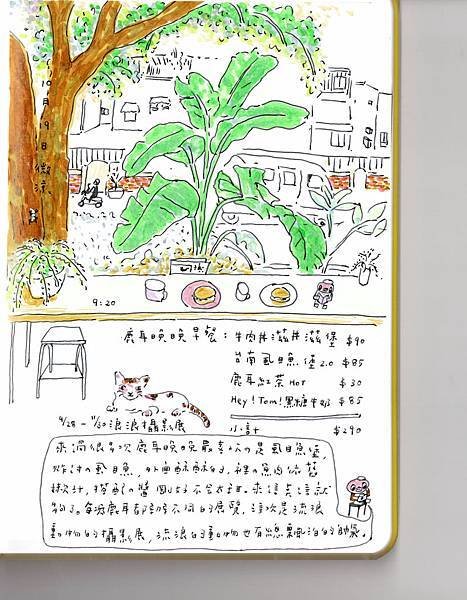 10月19日微涼
9:20
鹿耳晚晚早餐：牛肉井滋井滋堡 $90
台南虱目魚堡2.0 $85
鹿耳紅茶 HOT $30
Hey! Tom!黑糖牛奶 $85
小計 $290
9/28 - 11/30 浪浪攝影展
來過很多次鹿耳晚晚最喜歡的是虱目魚堡，
炸過的虱目魚，外面酥酥的，裡の魚肉依舊
搭配の醬
每次鹿耳都有不同的展覽，這次是流浪
動物的攝影展，流浪的動物也有總飄泊的帥氣。